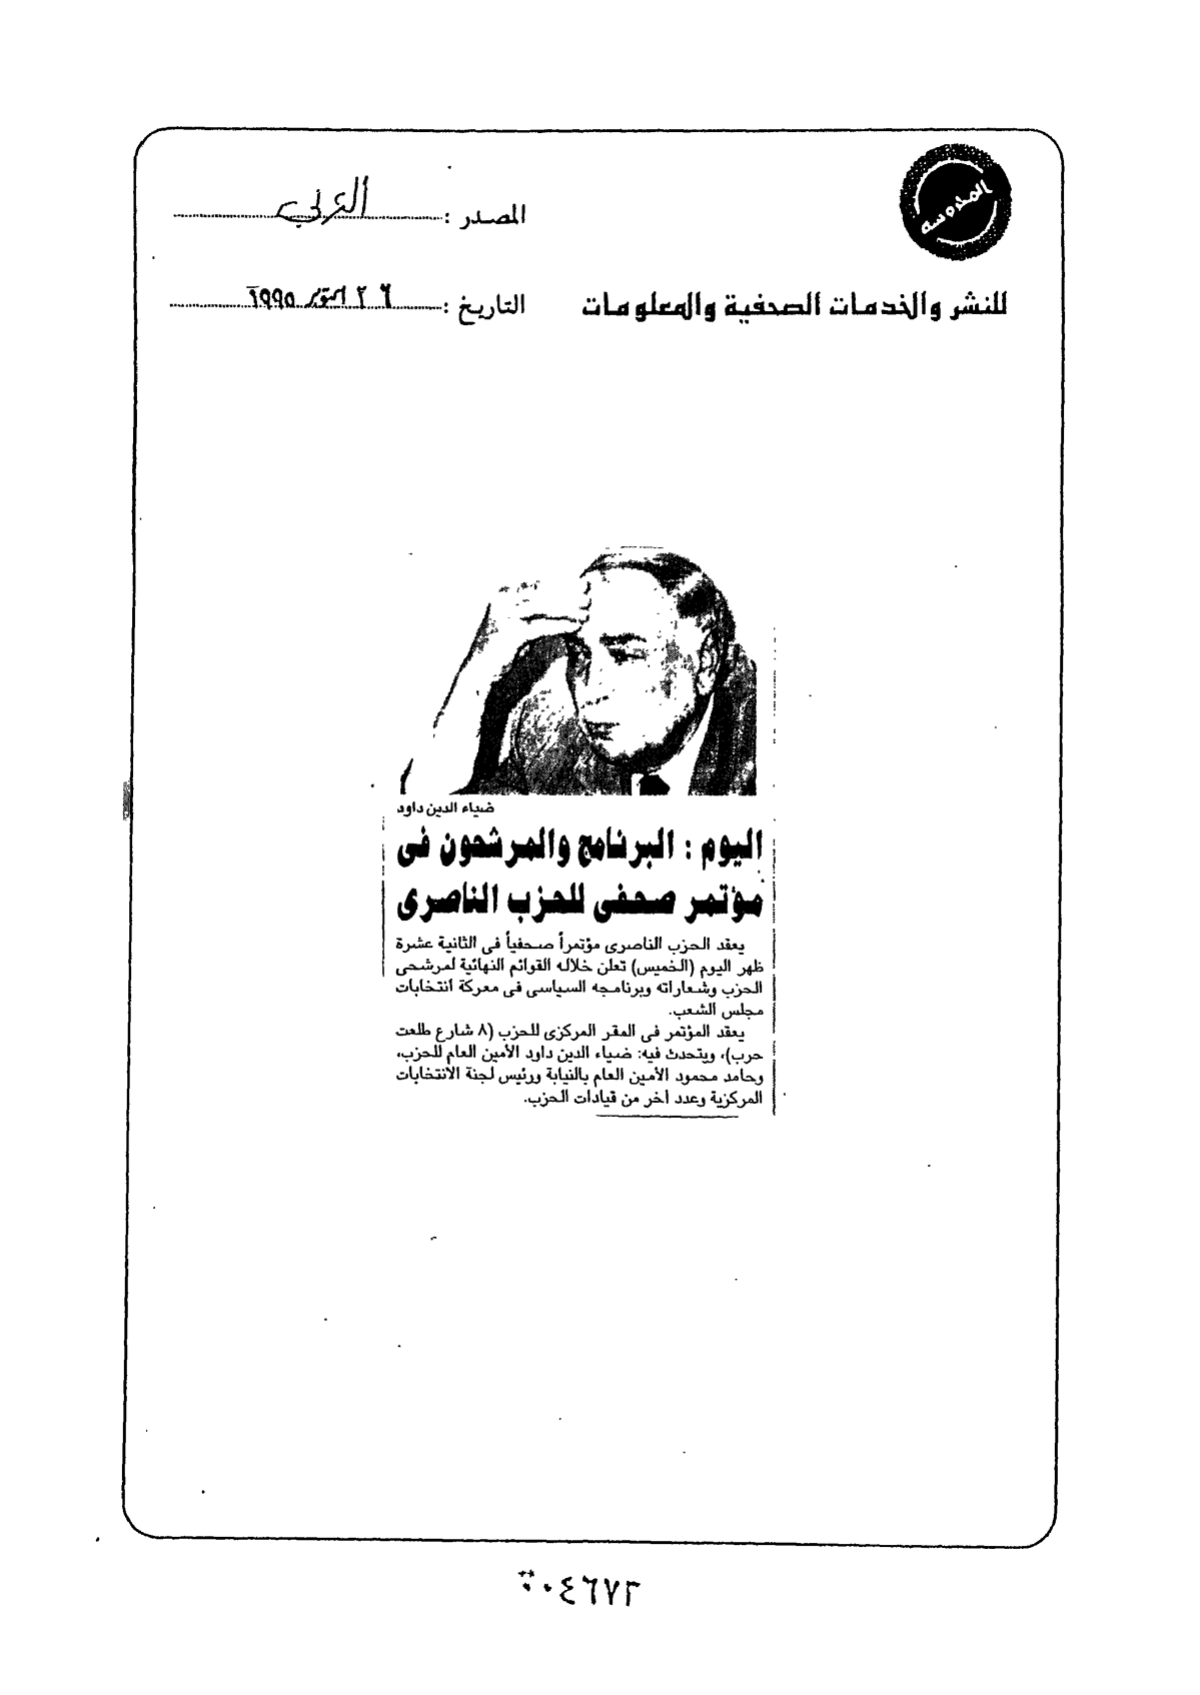 المحروسة
المصدر : العربي
للنشر والخدمات الصحفية والمعلومات
التاريخ : ٢٦ اكتوبر ١٩٩٥
ضياء الدين داود
اليوم : البرنامج والمرشحون فى
مؤتمر صحفى للحزب الناصرى
يعقد الحزب الناصرى مؤتمراً صحفياً فى الثانية عشرة
ظهر اليوم (الخميس) تعلن خلاله القوائم النهائية لمرشحى
الحزب وشعاراته وبرنامجه السياسى فى معركة انتخابات
مجلس الشعب.
يعقد المؤتمر فى المقر المركزى للحزب (٨ شارع طلعت
حرب)، ويتحدث فيه: ضياء الدين داود الأمين العام للحزب،
وحامد محمود الأمين العام بالنيابة ورئيس لجنة الانتخابات
المركزية وعدد آخر من قيادات الحزب.